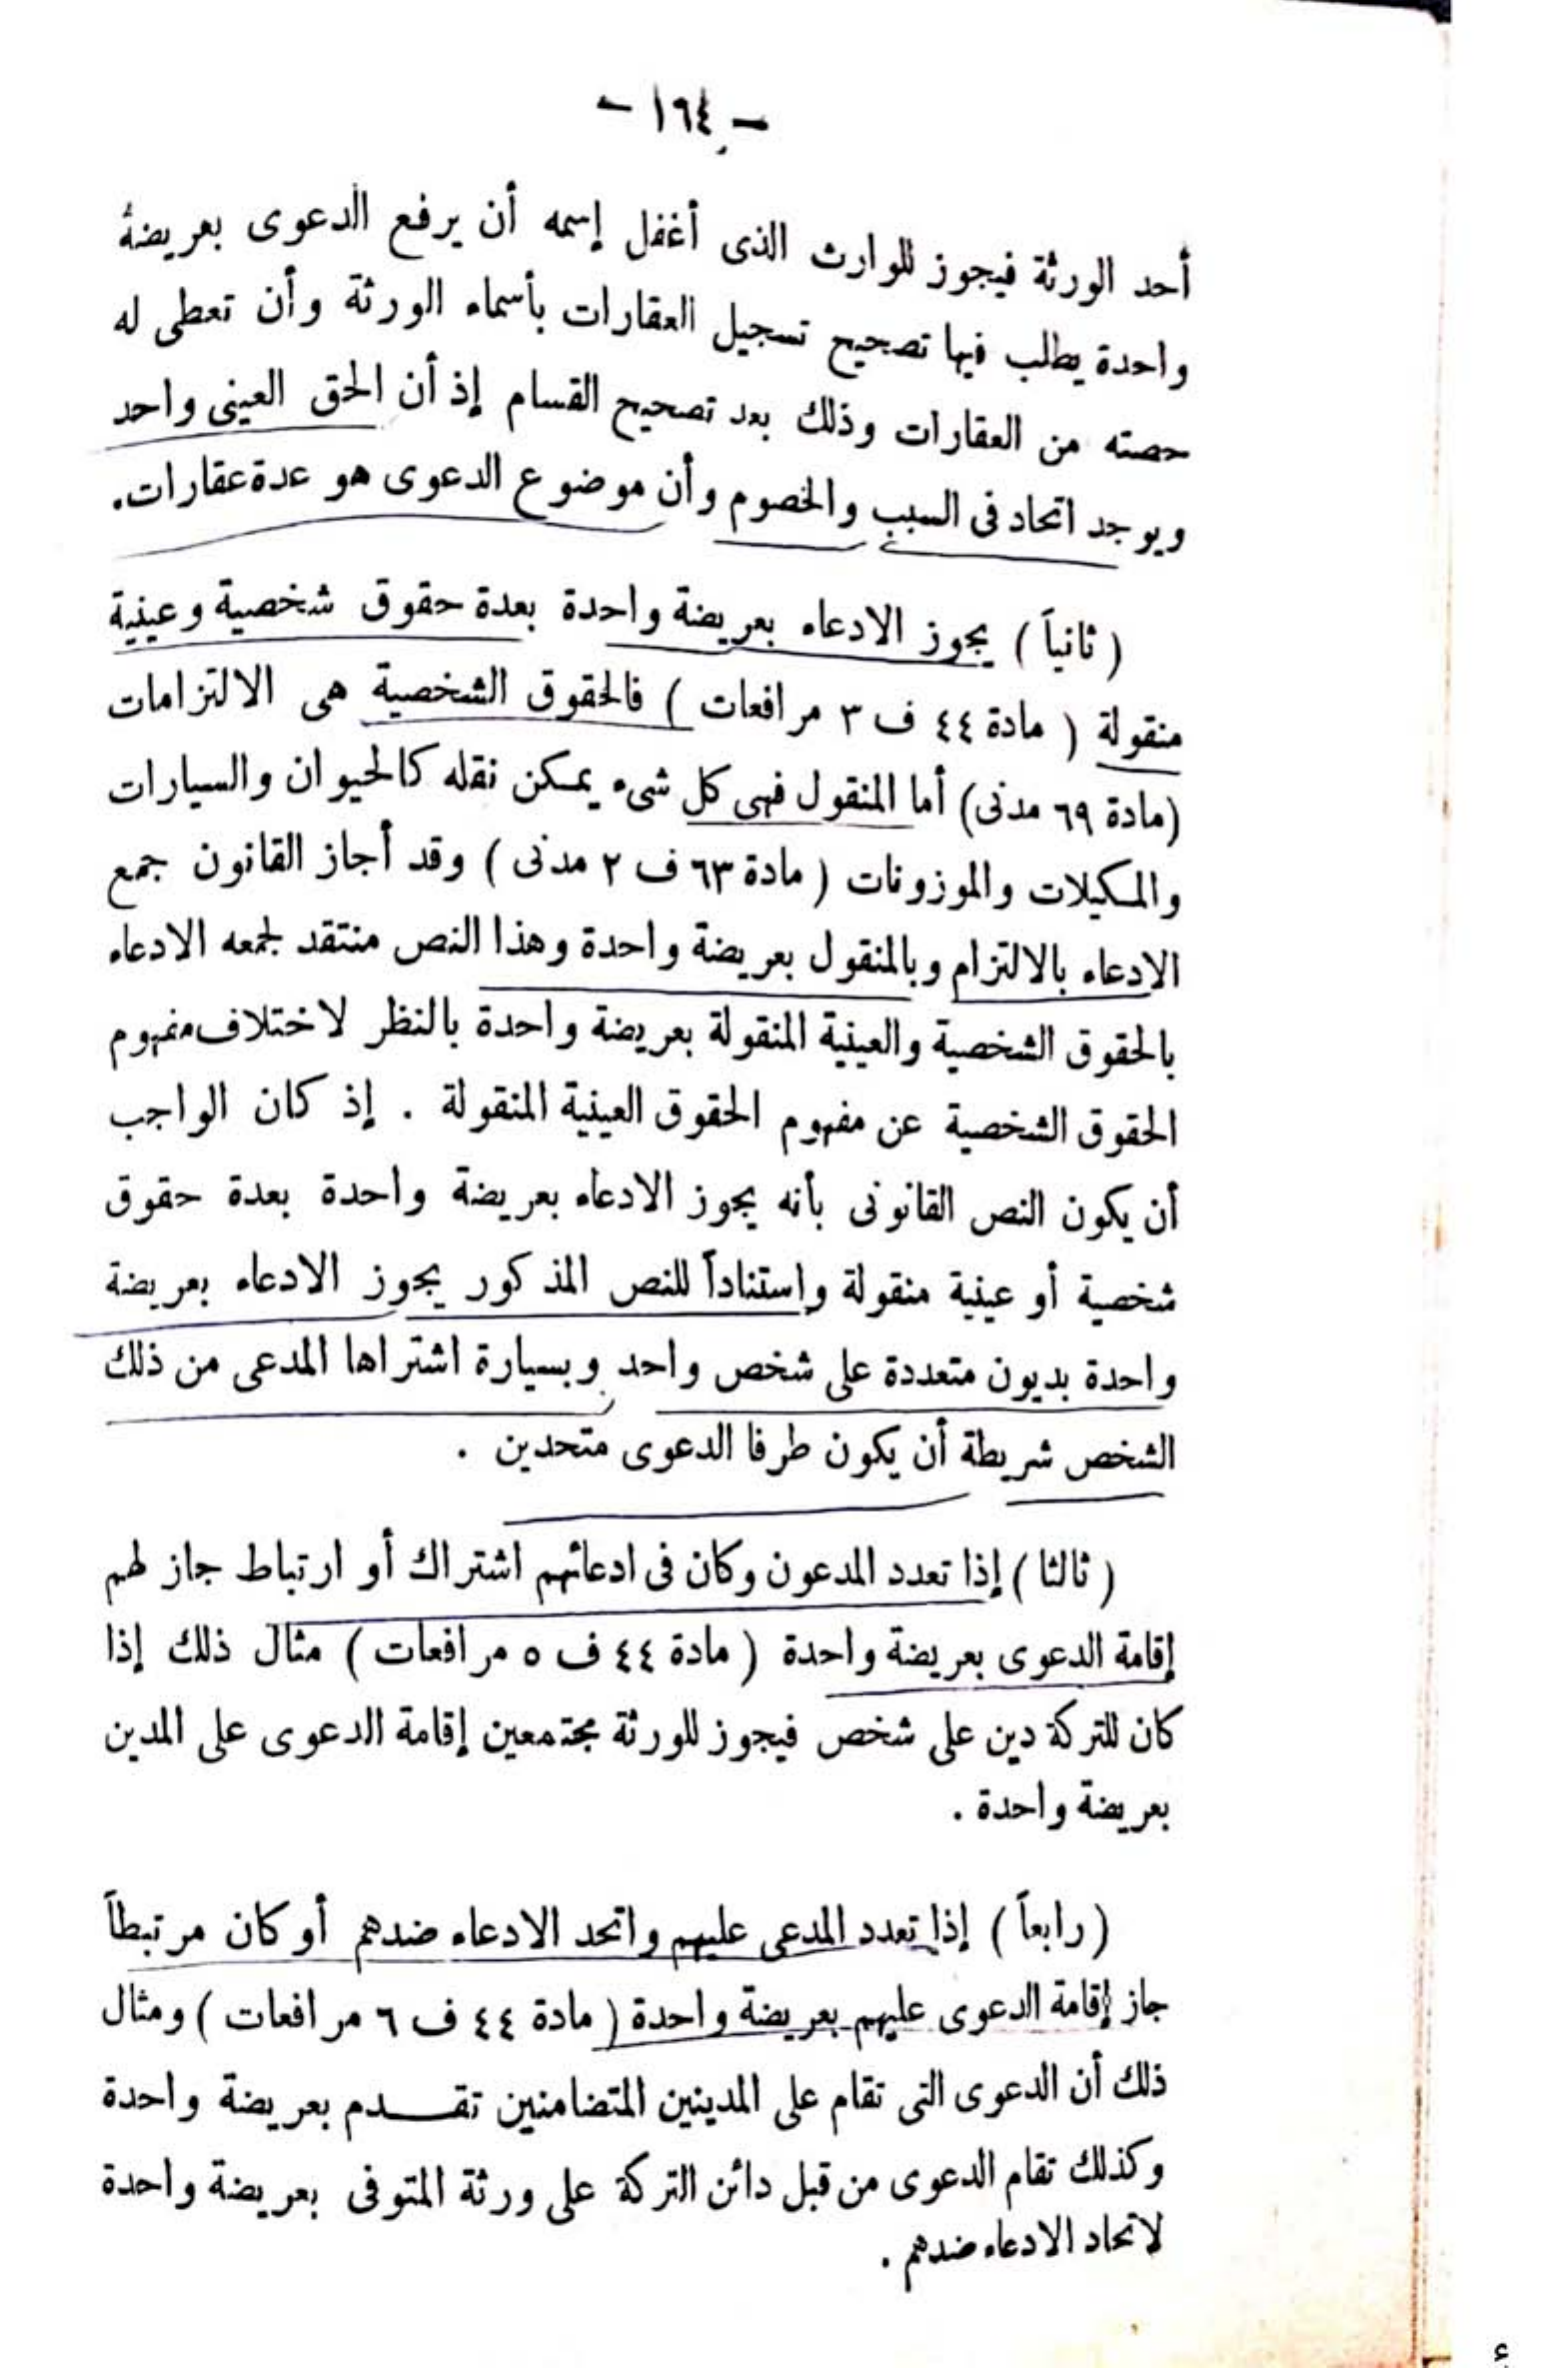 - ١٦٤ -
أحد الورثة فيجوز للوارث الذى أغفل إسمه أن يرفع الدعوى بعريضة
واحدة يطلب فيها تصحيح تسجيل العقارات بأسماء الورثة وأن تعطى له
حصته من العقارات وذلك بعد تصحيح القسام إذ أن الحق العينى واحد
ويوجد اتحاد فى السبب والخصوم وأن موضوع الدعوى هو عدة عقارات.
( ثانياً ) يجوز الادعاء بعريضة واحدة بعدة حقوق شخصية وعينية
منقولة ( مادة ٤٤ ف ٣ مرافعات ) فالحقوق الشخصية هى الالتزامات
(مادة ٦٩ مدنى) أما المنقول فهى كل شىء يمكن نقله كالحيوان والسيارات
والمكيلات والموزونات ( مادة ٦٣ ف ٢ مدنى ) وقد أجاز القانون جمع
الادعاء بالالتزام وبالمنقول بعريضة واحدة وهذا النص منتقد لجمعه الادعاء
بالحقوق الشخصية والعينية المنقولة بعريضة واحدة بالنظر لاختلاف مفهوم
الحقوق الشخصية عن مفهوم الحقوق العينية المنقولة . إذ كان الواجب
أن يكون النص القانونى بأنه يجوز الادعاء بعريضة واحدة بعدة حقوق
شخصية أو عينية منقولة واستناداً للنص المذكور يجوز الادعاء بعريضة
واحدة بديون متعددة على شخص واحد وبسيارة اشتراها المدعى من ذلك
الشخص شريطة أن يكون طرفا الدعوى متحدين .
( ثالثا ) إذا تعدد المدعون وكان فى ادعائهم اشتراك أو ارتباط جاز لهم
إقامة الدعوى بعريضة واحدة ( مادة ٤٤ ف ٥ مرافعات ) مثال ذلك إذا
كان للتركة دين على شخص فيجوز للورثة مجتمعين إقامة الدعوى على المدين
بعريضة واحدة .
( رابعاً ) إذا تعدد المدعى عليهم واتحد الادعاء ضدهم أو كان مرتبطاً
جاز إقامة الدعوى عليهم بعريضة واحدة ( مادة ٤٤ ف ٦ مرافعات ) ومثال
ذلك أن الدعوى التى تقام على المدينين المتضامنين تقـــدم بعريضة واحدة
وكذلك تقام الدعوى من قبل دائن التركة على ورثة المتوفى بعريضة واحدة
لاتحاد الادعاء ضدهم .